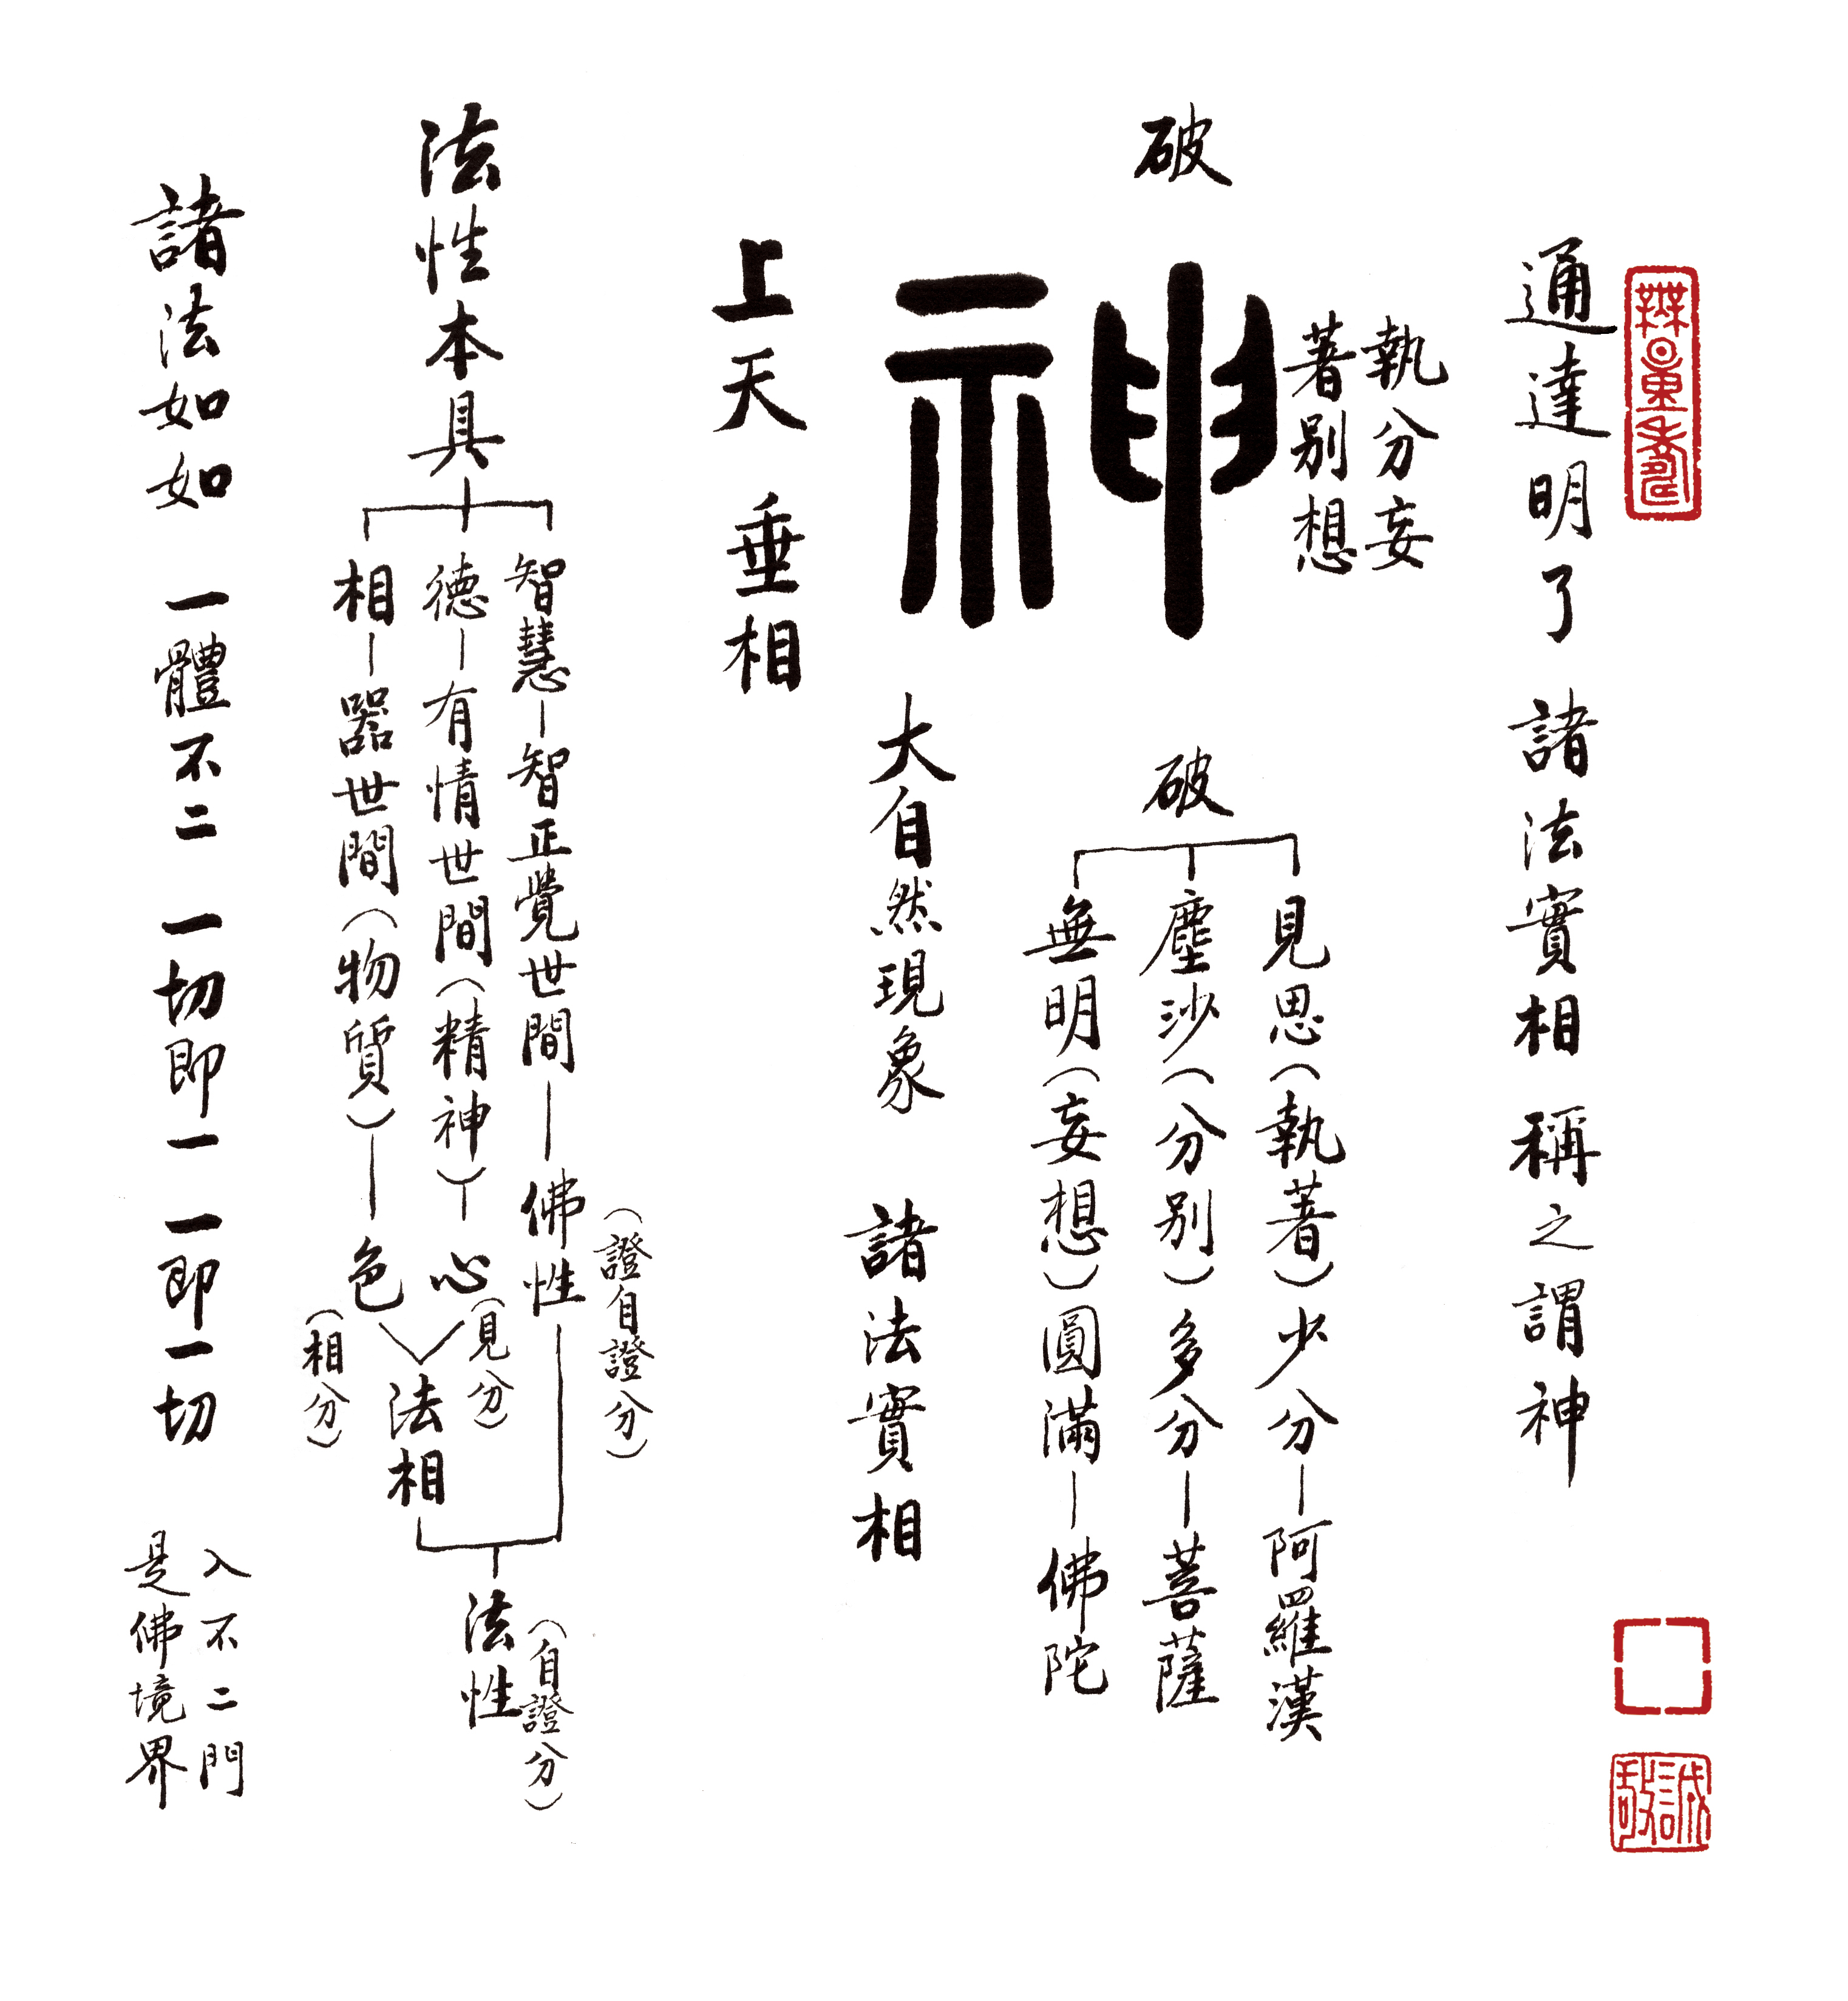 無量壽
通達明了 諸法實相 稱之謂神
破
執著
分別
妄想
神
破
見思(執著)少分—阿羅漢
塵沙(分別)多分—菩薩
無明(妄想)圓滿—佛陀
上天 垂相
大自然現象 諸法實相
法性本具
智慧—智正覺世間—佛性(證自證分)
德—有情世間(精神)—心(見分)
相—器世間(物質)—色(相分)
法相
法性(自證分)
諸法如如 一體不二 一切即一 一即一切
入不二門
是佛境界
誠敬